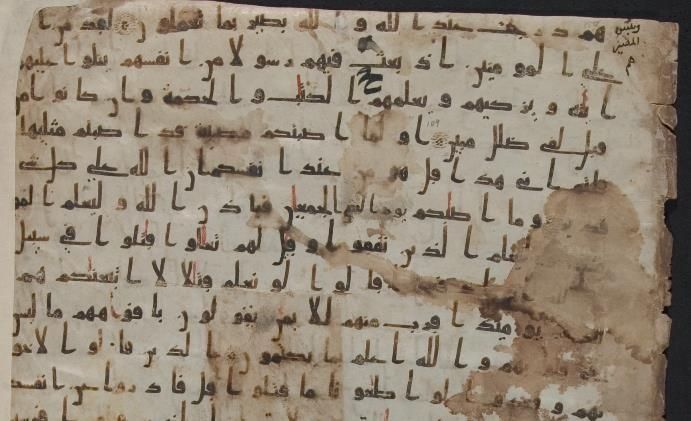 هم درجت عند الله و الله بصير بما يعملون لقد من ا
على المومنين اذ بعث فيهم رسولا من انفسهم يتلوا عليهم
ايته و يزكيهم و يعلمهم الكتب و الحكمة و ان كانوا من
قبل لفى ضلل مبين او لما اصبتكم مصيبة قد اصبتم مثليها
قلتم انى هذا قل هو من عند انفسكم ان الله على كل شى
قدير و ما اصبكم يوم التقى الجمعن فباذن الله و ليعلم المو
و ليعلم الذين نفقوا و قيل لهم تعلوا قتلوا فى سبيل
قالوا لو نعلم قتلا لا تبعنكم هم
يومئذ اقرب منهم للايمن يقولون بافوههم ما ليس
فى قلوبهم و الله اعلم بما يكتمون الذين قالوا لاخو
نهم و قعدوا لو اطعونا ما قتلوا قل فادروا عن انفسكم